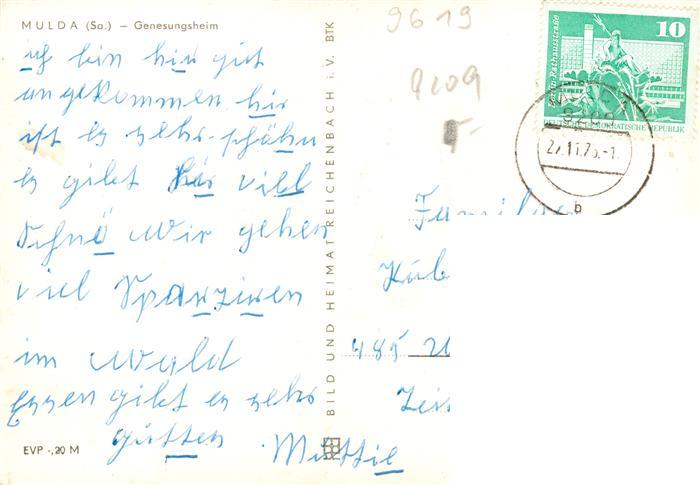 MULDA (Sa.) – Genesungsheim
ich bin hir gut
angekommen hir
ist es sehr schöhn
es gibt hir viell
Schnö Wir gehen
viel Sparziren
im Wald
Essen gibt es sehr
gutten Muttie
EVP -,20 M
BILD UND HEIMAT REICHENBACH i. V. BTK
9619
9209
10
Berlin-Rathausstraße
DEUTSCHE DEMOKRATISCHE REPUBLIK
MULDA
9209
27.11.75.-1
b
Familie
Küb
485